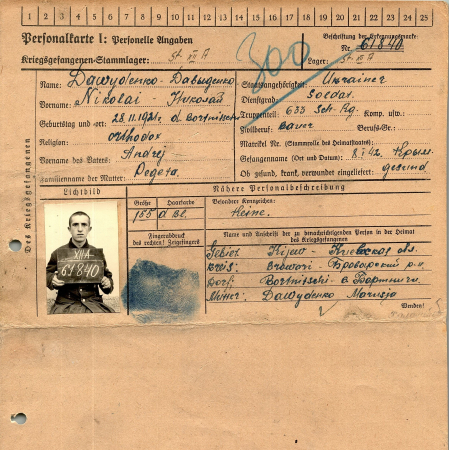 1 2 3 4 5 6 7 8 9 10 11 12 13 14 15 16 17 18 19 20 21 22 23 24 25
Personalkarte I: Personelle Angaben
Beschriftung der Erkennungsmarke
Nr. 61840
Kriegsgefangenen-Stammlager: St
Lager: St
300
Des Kriegsgefangenen
Name: Dawydenko - Давыденко
Staatsangehörigkeit: Ukrainer
Vorname: Nikolai - Николай
Dienstgrad: Soldat
Truppenteil: 633 Sch. Rg. Komp. usw.:
Geburtstag und -ort: 28.11.1921. d. Bortnitschi
Zivilberuf: Bauer Berufs-Gr.:
Religion: Orthodox
Matrikel Nr. (Stammrolle des Heimatstaates):
Vorname des Vaters: Andrej
Gefangennahme (Ort und Datum): 8.5.42. Крым
Familienname der Mutter:
Ob gesund, krank, verwundet eingeliefert: gesund
Lichtbild
Nähere Personalbeschreibung
Größe Haarfarbe
Besondere Kennzeichen:
155 d. Bl.
Keine.
Fingerabdruck
des rechten Zeigefingers
Name und Anschrift der zu benachrichtigenden Person in der Heimat
des Kriegsgefangenen
Gebiet Kijew - Киевская обл.
Kreis Browari - Броварский р-н
Dorf: Bortnitschi с. Бортничи
Mutter: Dawydenko Marusja
Wenden!
XIIA
61840